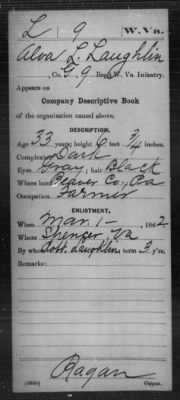 L 9 W. Va.
Alva L. Laughlin
, Co. G, 9 Reg't W. Va. Infantry.
Appears on
Company Descriptive Book
of the organization named above.
DESCRIPTION.
Age 33 years; height 6 feet 3/4 inches.
Complexion Dark
Eyes Gray; hair Black
Where born Beaver Co, Pa
Occupation Farmer
ENLISTMENT.
When Mar. 1 -, 1862.
Where Spencer, Va
By whom Robt. Laughlin; term 3 y'rs.
Remarks:
Ragan
Copyist.